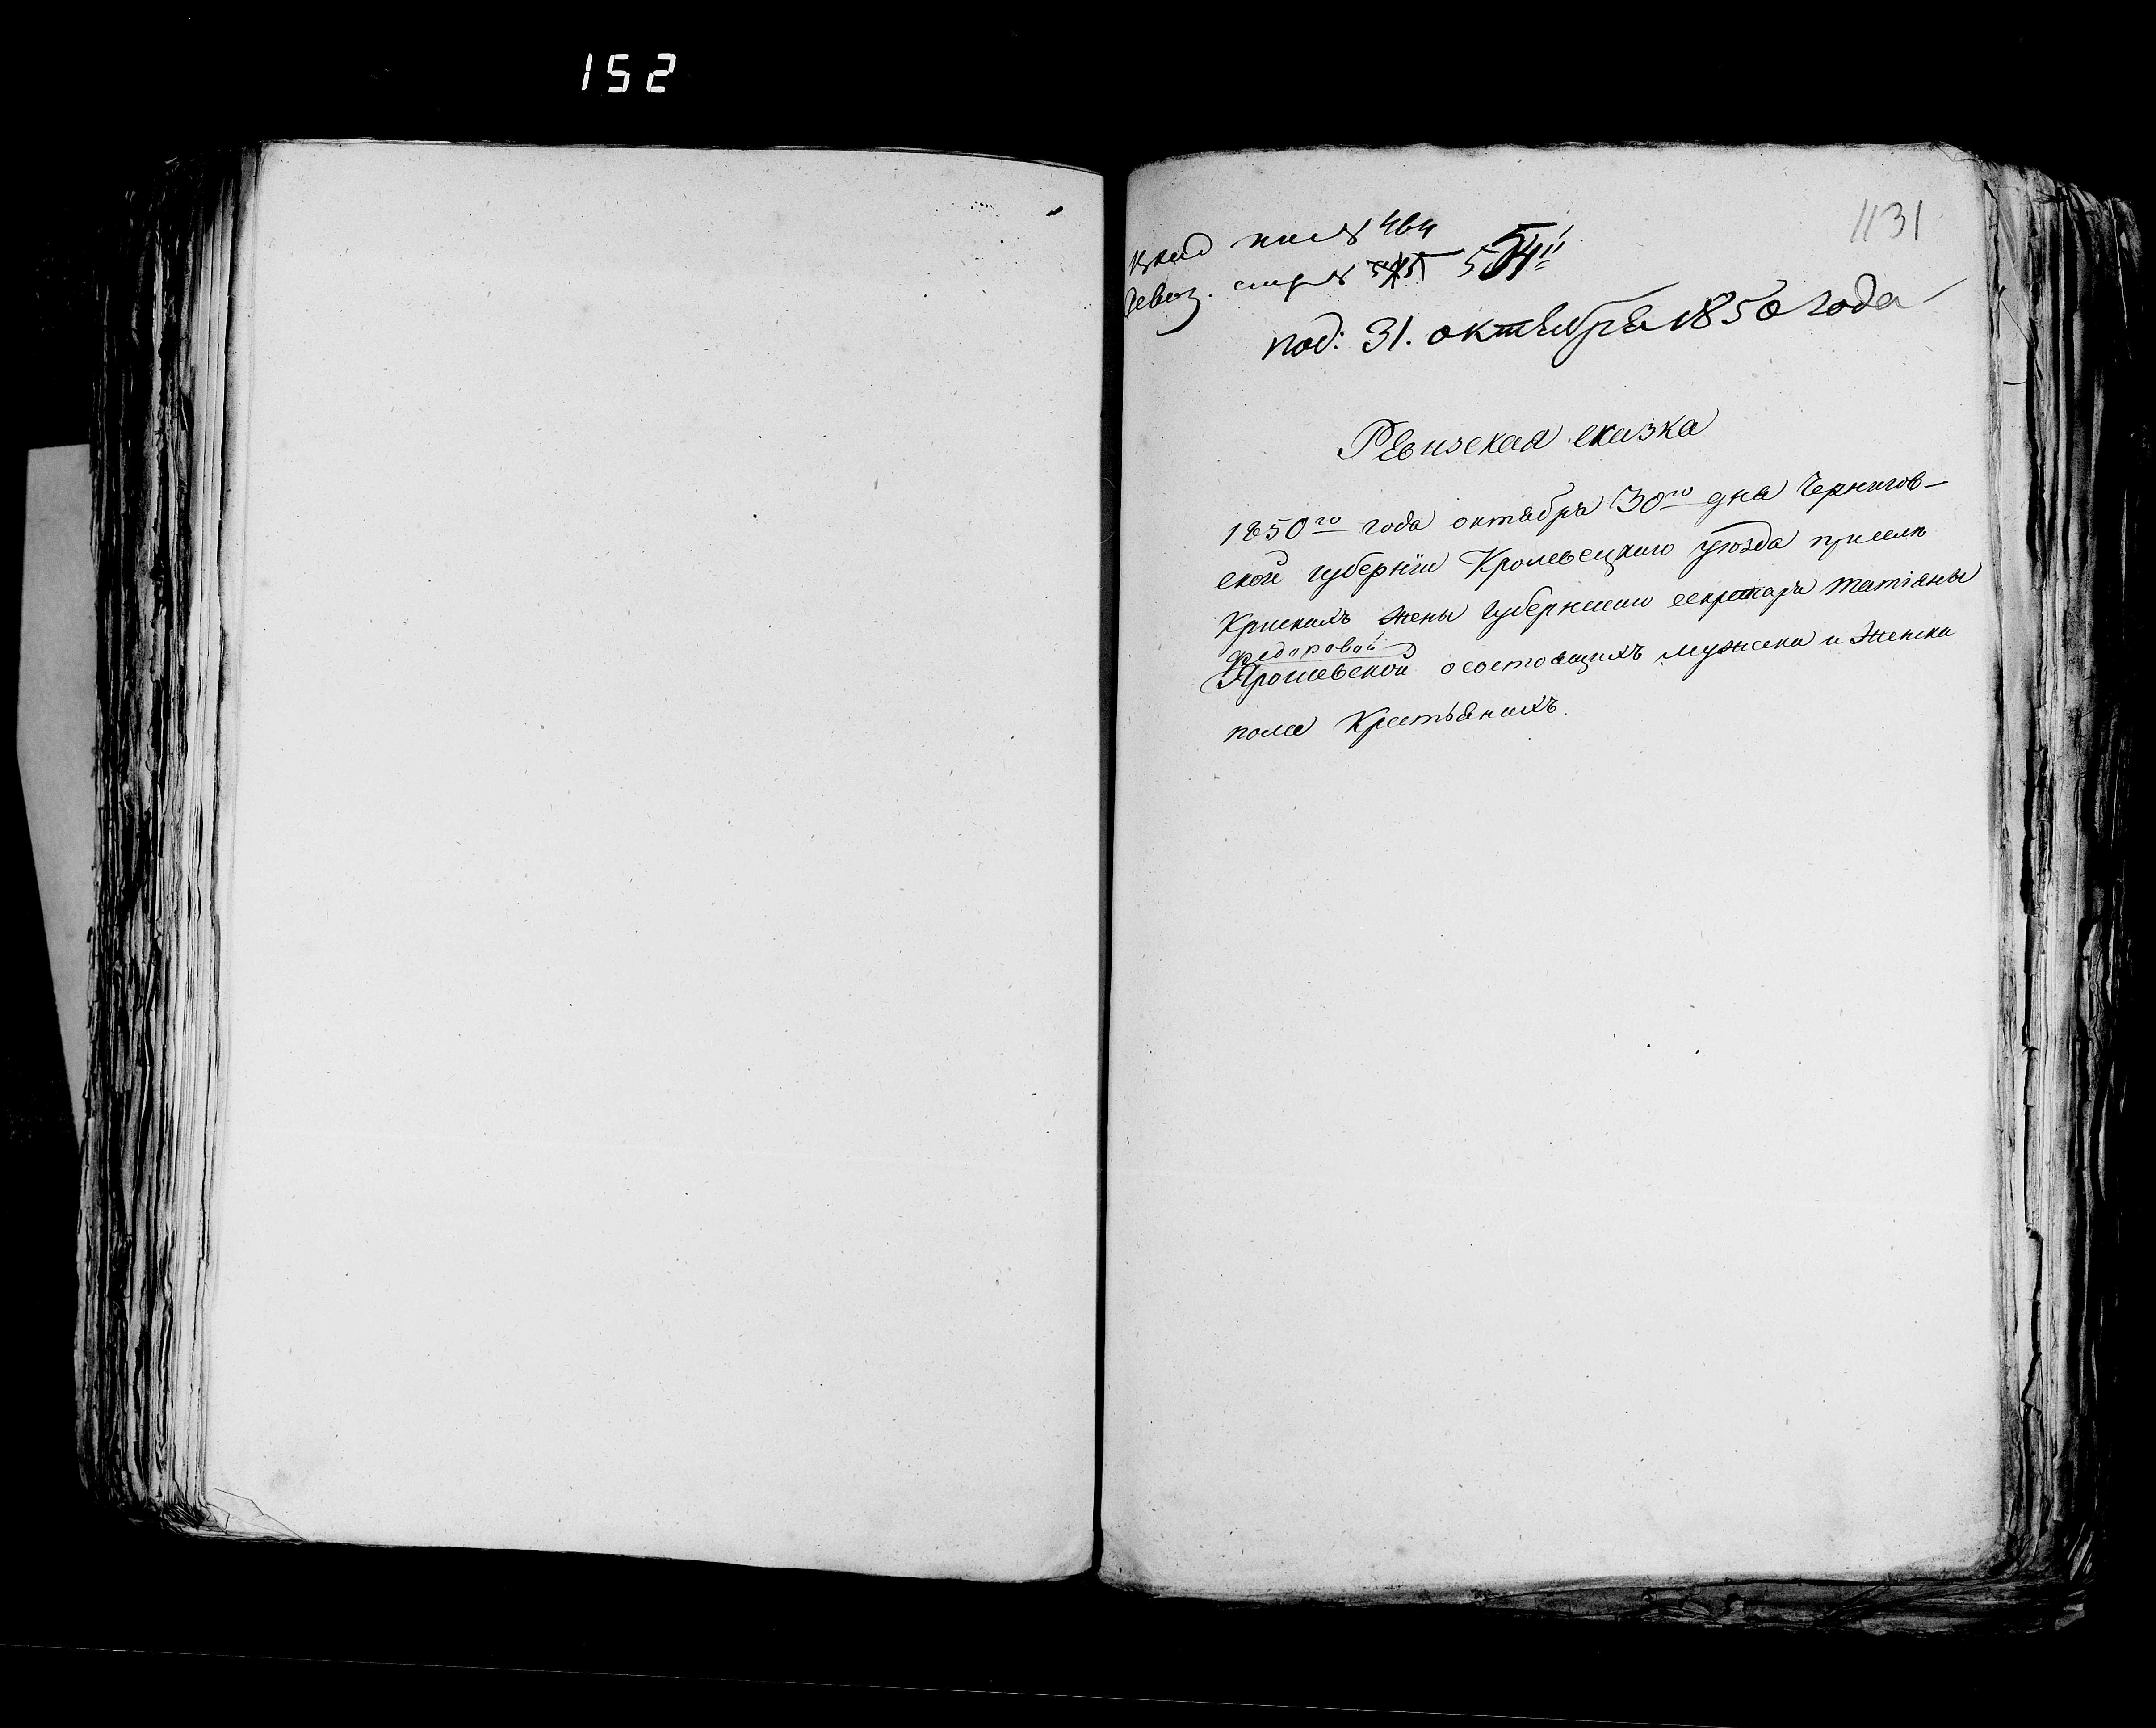 152
1131
№ 464
№ 554
под: 31. октября 1850 года
Ревизская сказка
1850го года октября 30го дня Чернигов-
ской губернiи Кролевецкаго уѣзда при селѣ
жены губернскаго секретаря Татiяны
Федоровой
Ярошевской о состоящихъ мужска и женска
пола Крестьянихъ.